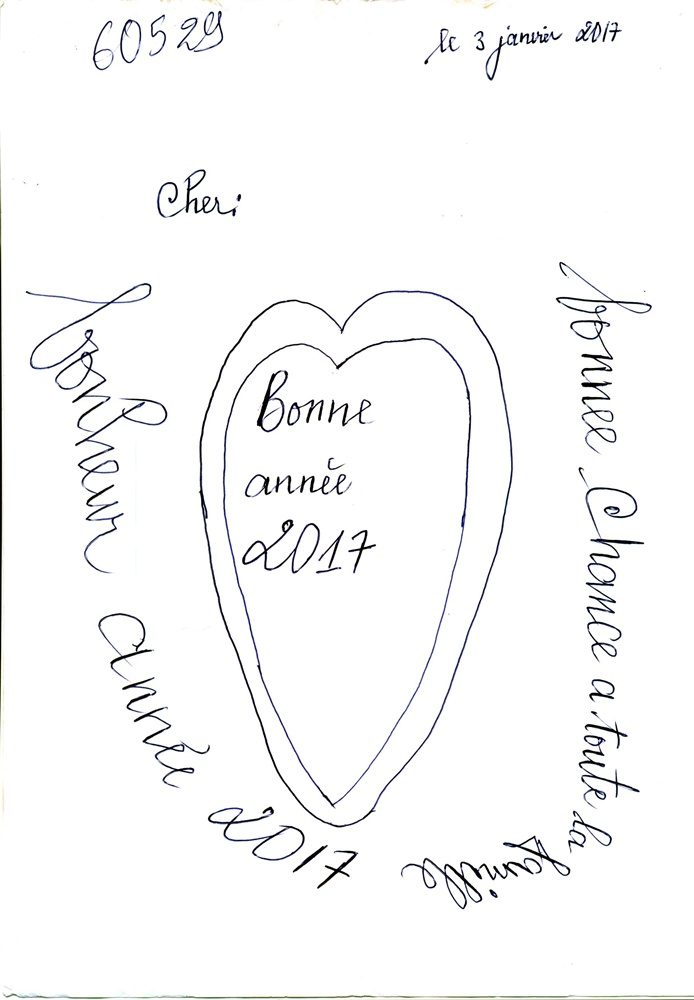 60529
le 3 janvier 2017
Cheri
Bonne
année
2017
bonheur année 2017
bonnee Chance a toute la famille